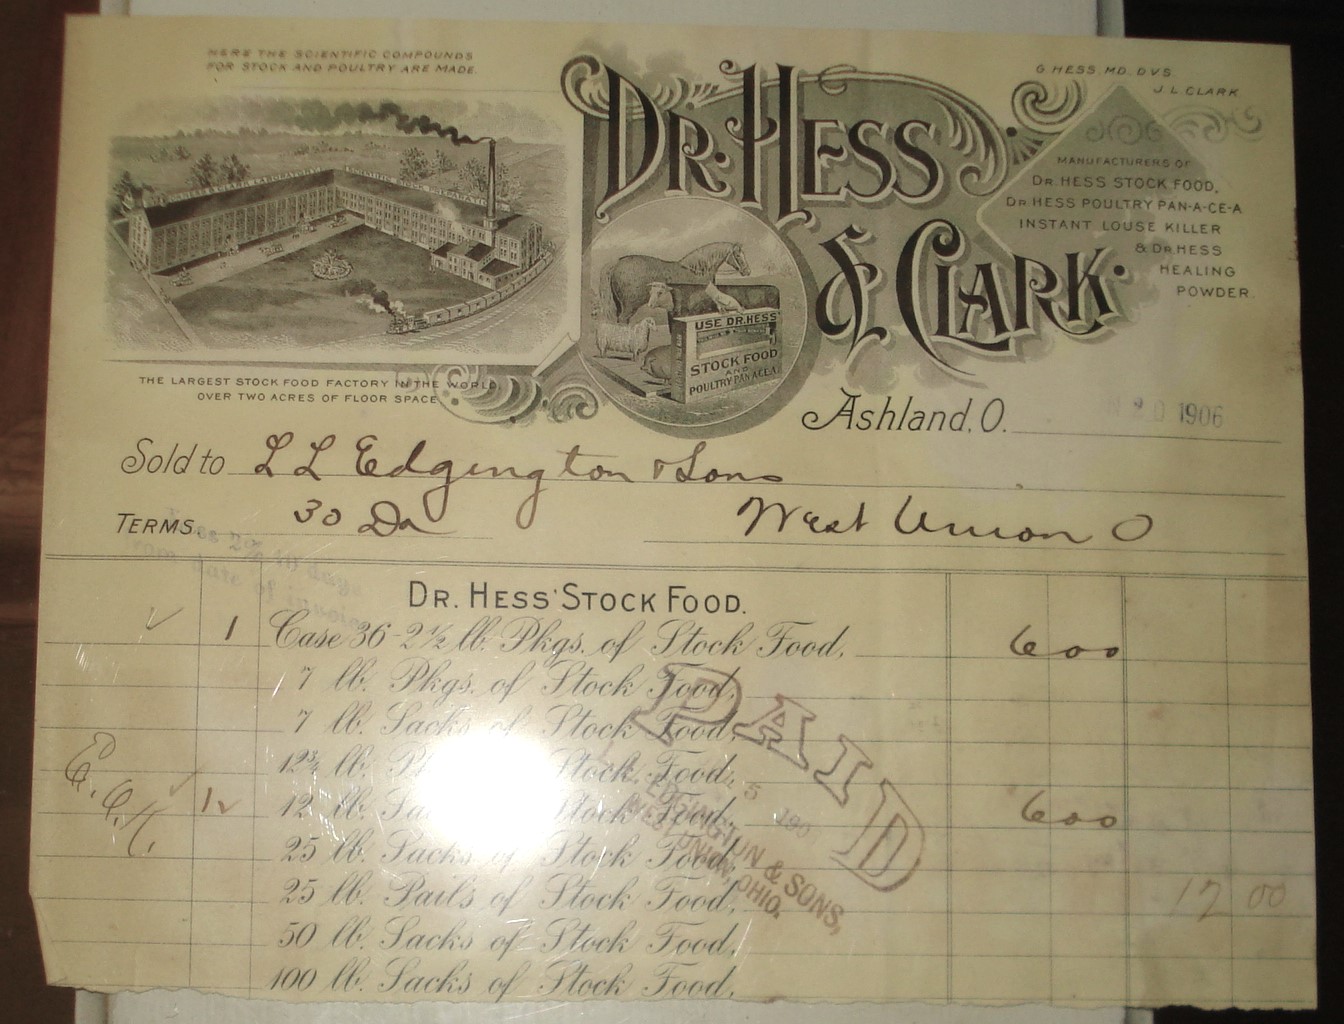 HERE THE SCIENTIFIC COMPOUNDS
FOR STOCK AND POULTRY ARE MADE.
THE LARGEST STOCK FOOD FACTORY IN THE WORLD
OVER TWO ACRES OF FLOOR SPACE.
DR. HESS
& CLARK.
G. HESS. M.D. D.V.S.
J. L. CLARK
MANUFACTURERS OF
DR. HESS STOCK FOOD,
DR HESS POULTRY PAN-A-CE-A
INSTANT LOUSE KILLER
& DR HESS
HEALING
POWDER.
USE DR. HESS'
STOCK FOOD
AND
POULTRY PAN-A-CE-A
Ashland, O. 20 1906
Sold to L L Edgington & Sons
TERMS 30 Da West Union O
2% 10 days
from date of invoice
DR. HESS' STOCK FOOD.
1 Case 36-2½ lb. Pkgs. of Stock Food, 6 00
7 lb. Pkgs. of Stock Food,
7 lb. Sacks of Stock Food,
12¾ lb. Stock Food,
12 lb. Stock Food, 6 00
25 lb. Sacks of Stock Food,
25 lb. Pails of Stock Food, 12 00
50 lb. Sacks of Stock Food,
100 lb. Sacks of Stock Food,
PAID
5 190
EDGINGTON & SONS,
WEST UNION, OHIO.